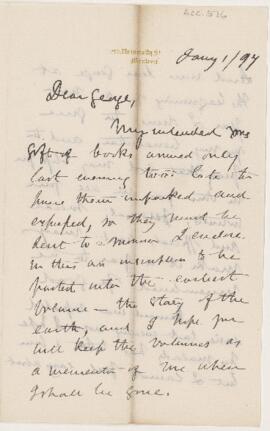 Acc. 576
Montreal
Jany 1/97
Dear George,
My intended
gift of books arrived only
last evening too late to
have them unpacked and
exposed, so they must be
sent to I enclose
in this an inscription to be
pasted into the earliest
volume — the story of the
earth, and I hope you
will keep the volumes as
a memento of me when
I shall be gone.